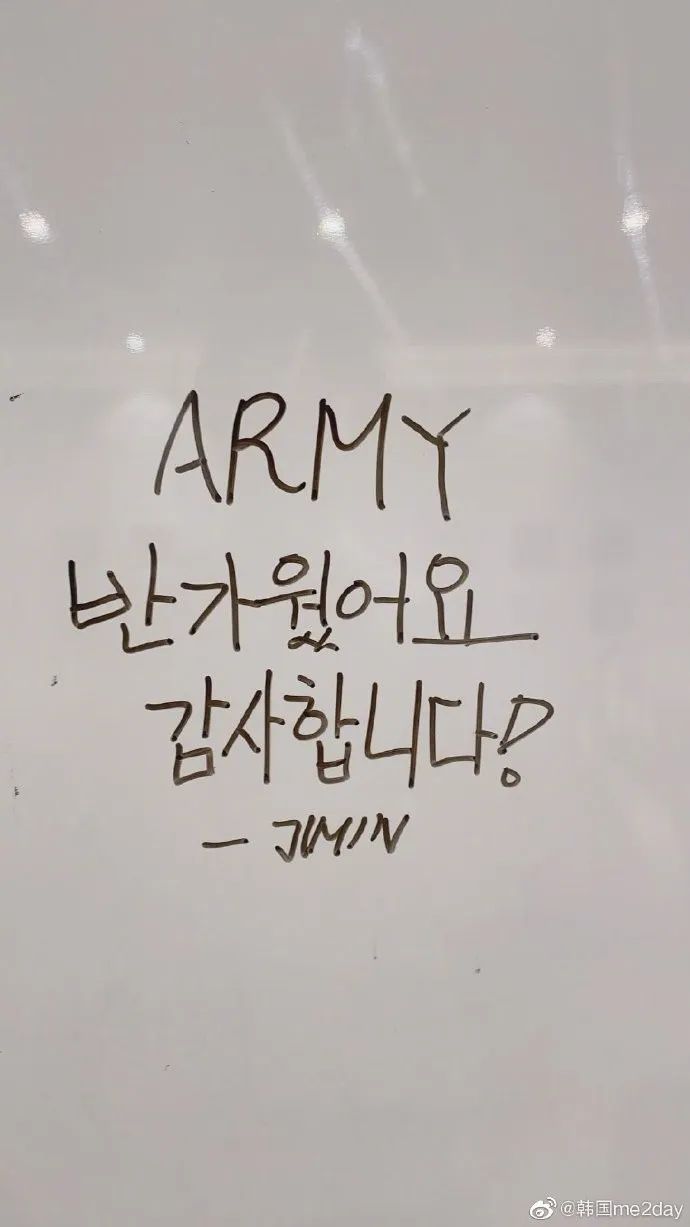 ARMY
반가웠어요
감사합니다!
- JIMIN
@韩国me2day